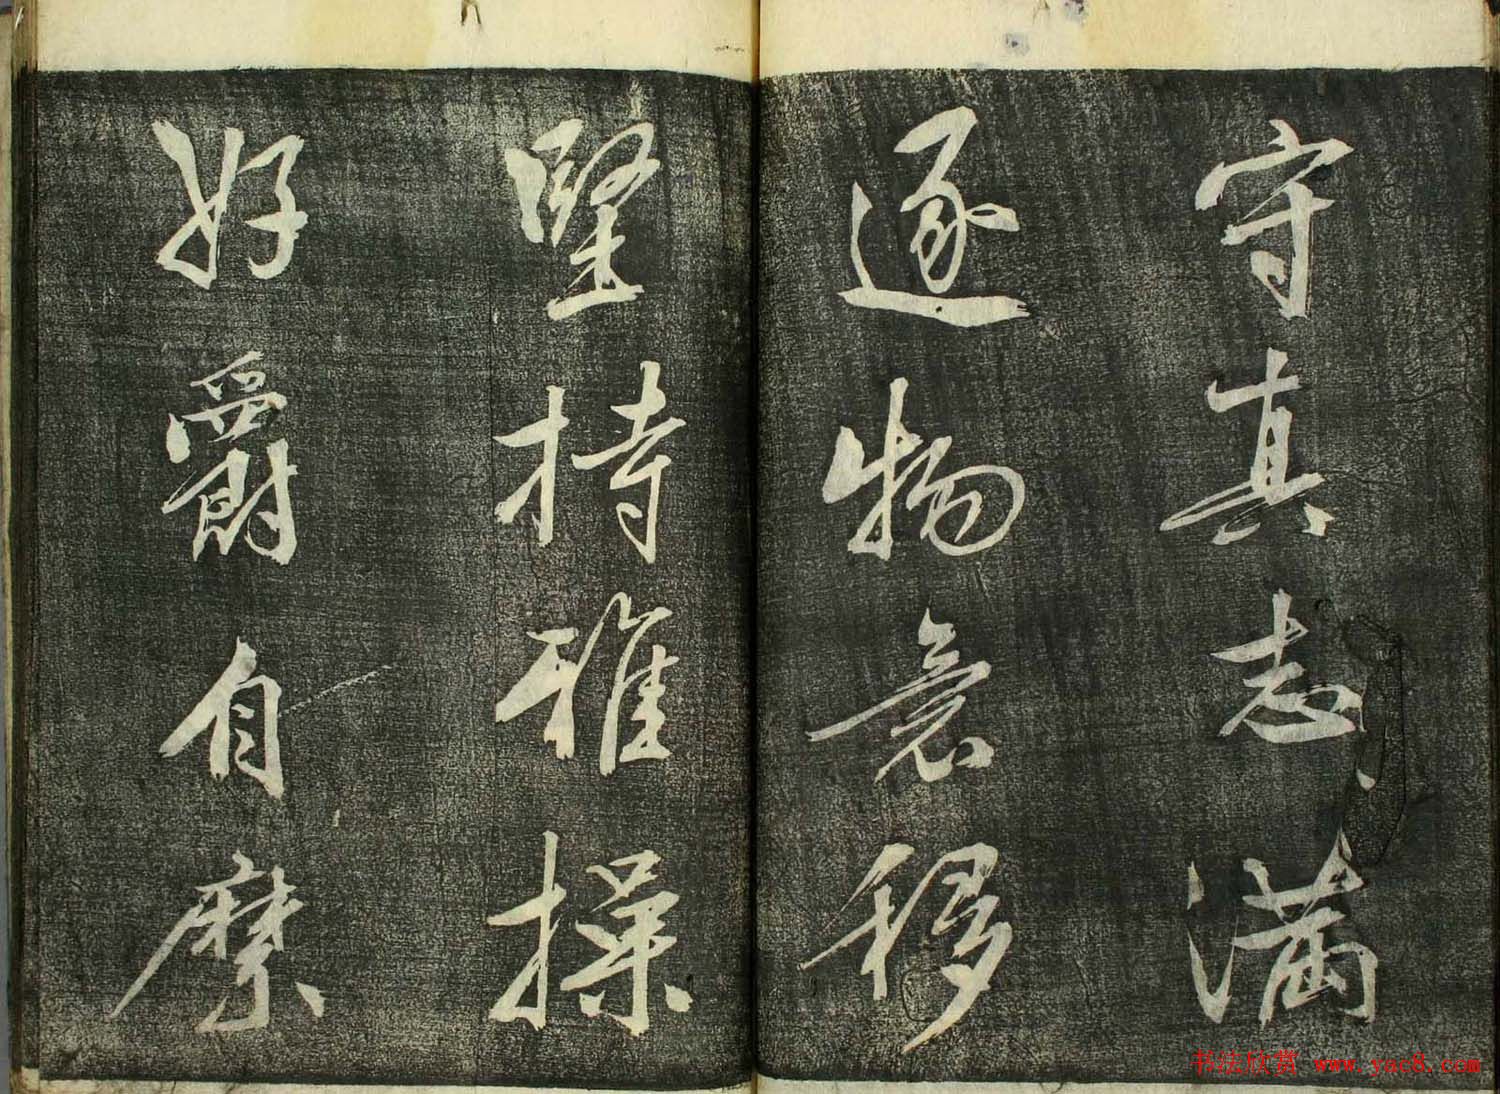 守真志满
逐物意移
坚持雅操
好爵自縻
书法欣赏 www.yac8.com